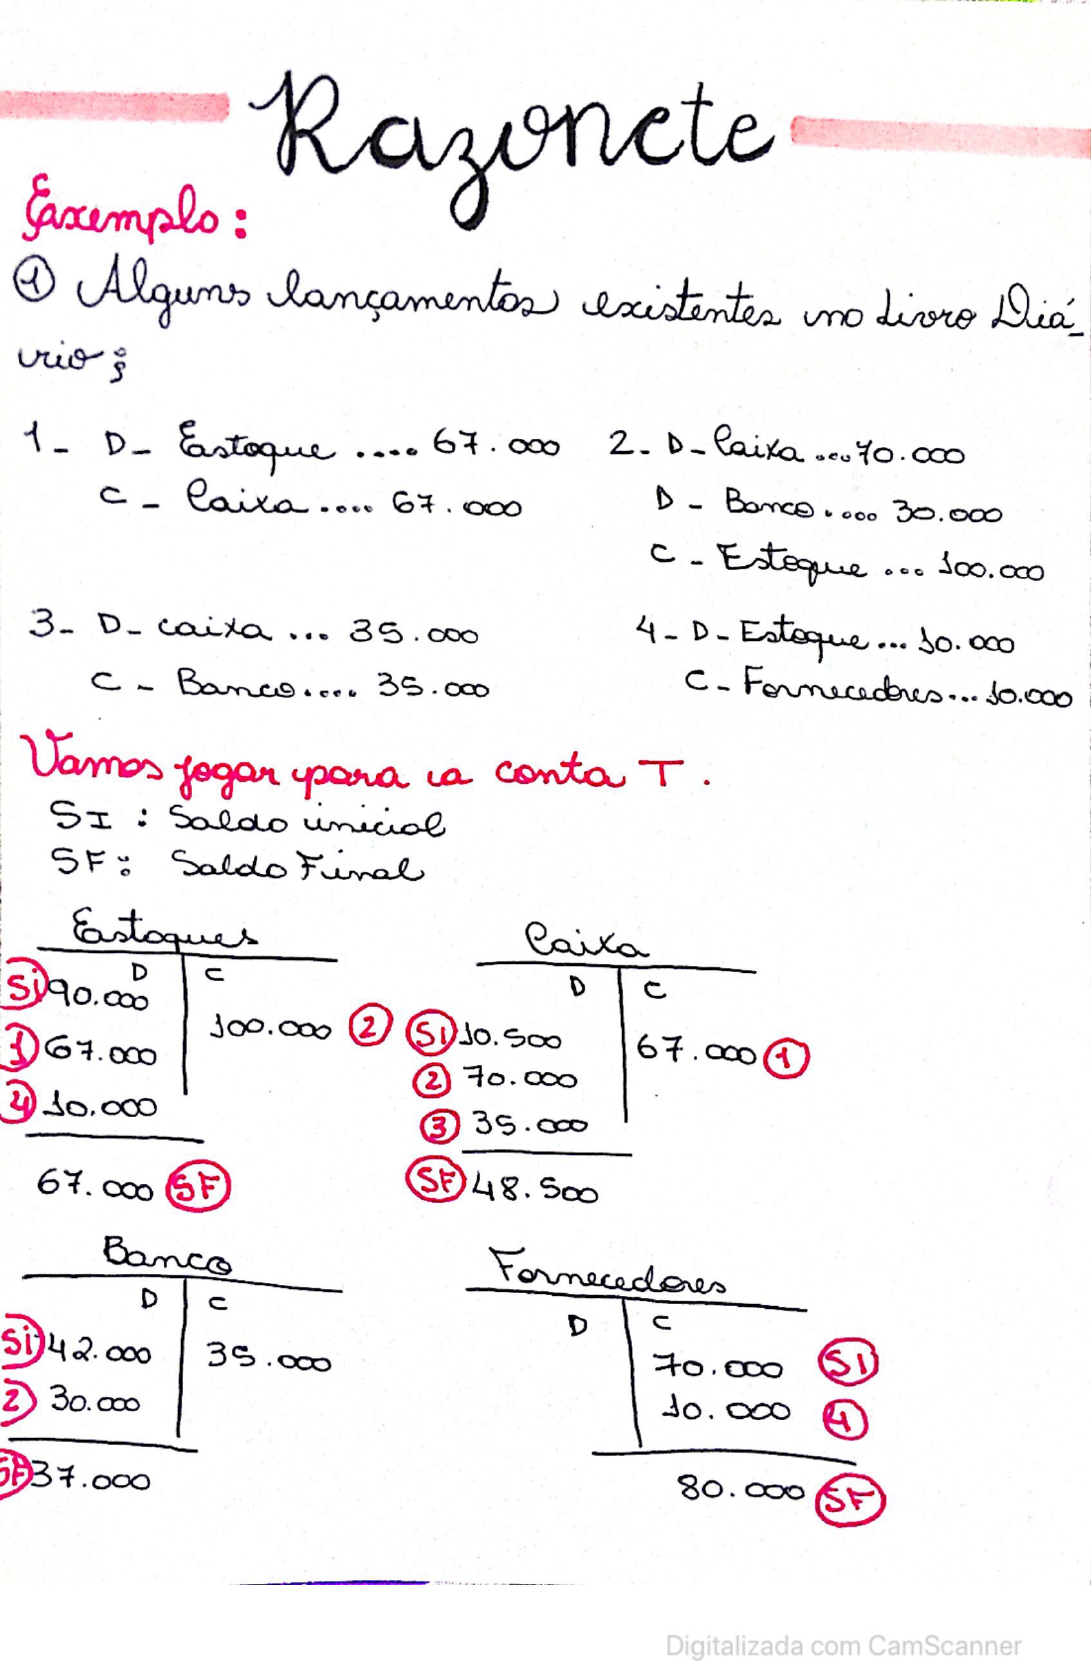 Razonete
Exemplo:
① Alguns lançamentos existentes no Livro Diá-
rio;
1- D- Estoque .... 67.000
C - Caixa ..... 67.000
2- D- Caixa ....70.000
D - Banco..... 30.000
C - Estoque ... 100.000
3- D- caixa ... 35.000
C - Banco..... 35.000
4- D- Estoque... 10.000
C- Fornecedores... 10.000
Vamos jogar para a conta T.
SI : Saldo inicial
SF: Saldo Final
Estoques
D C
Si 90.000
100.000 2
1 67.000
4 10.000
67.000 SF
Caixa
D C
SI 10.500
67.000 1
2 70.000
3 35.000
SF 48.500
Banco
D C
Si 42.000 35.000
2 30.000
SF 37.000
Fornecedores
D C
70.000 SI
10.000 4
80.000 SF
Digitalizada com CamScanner